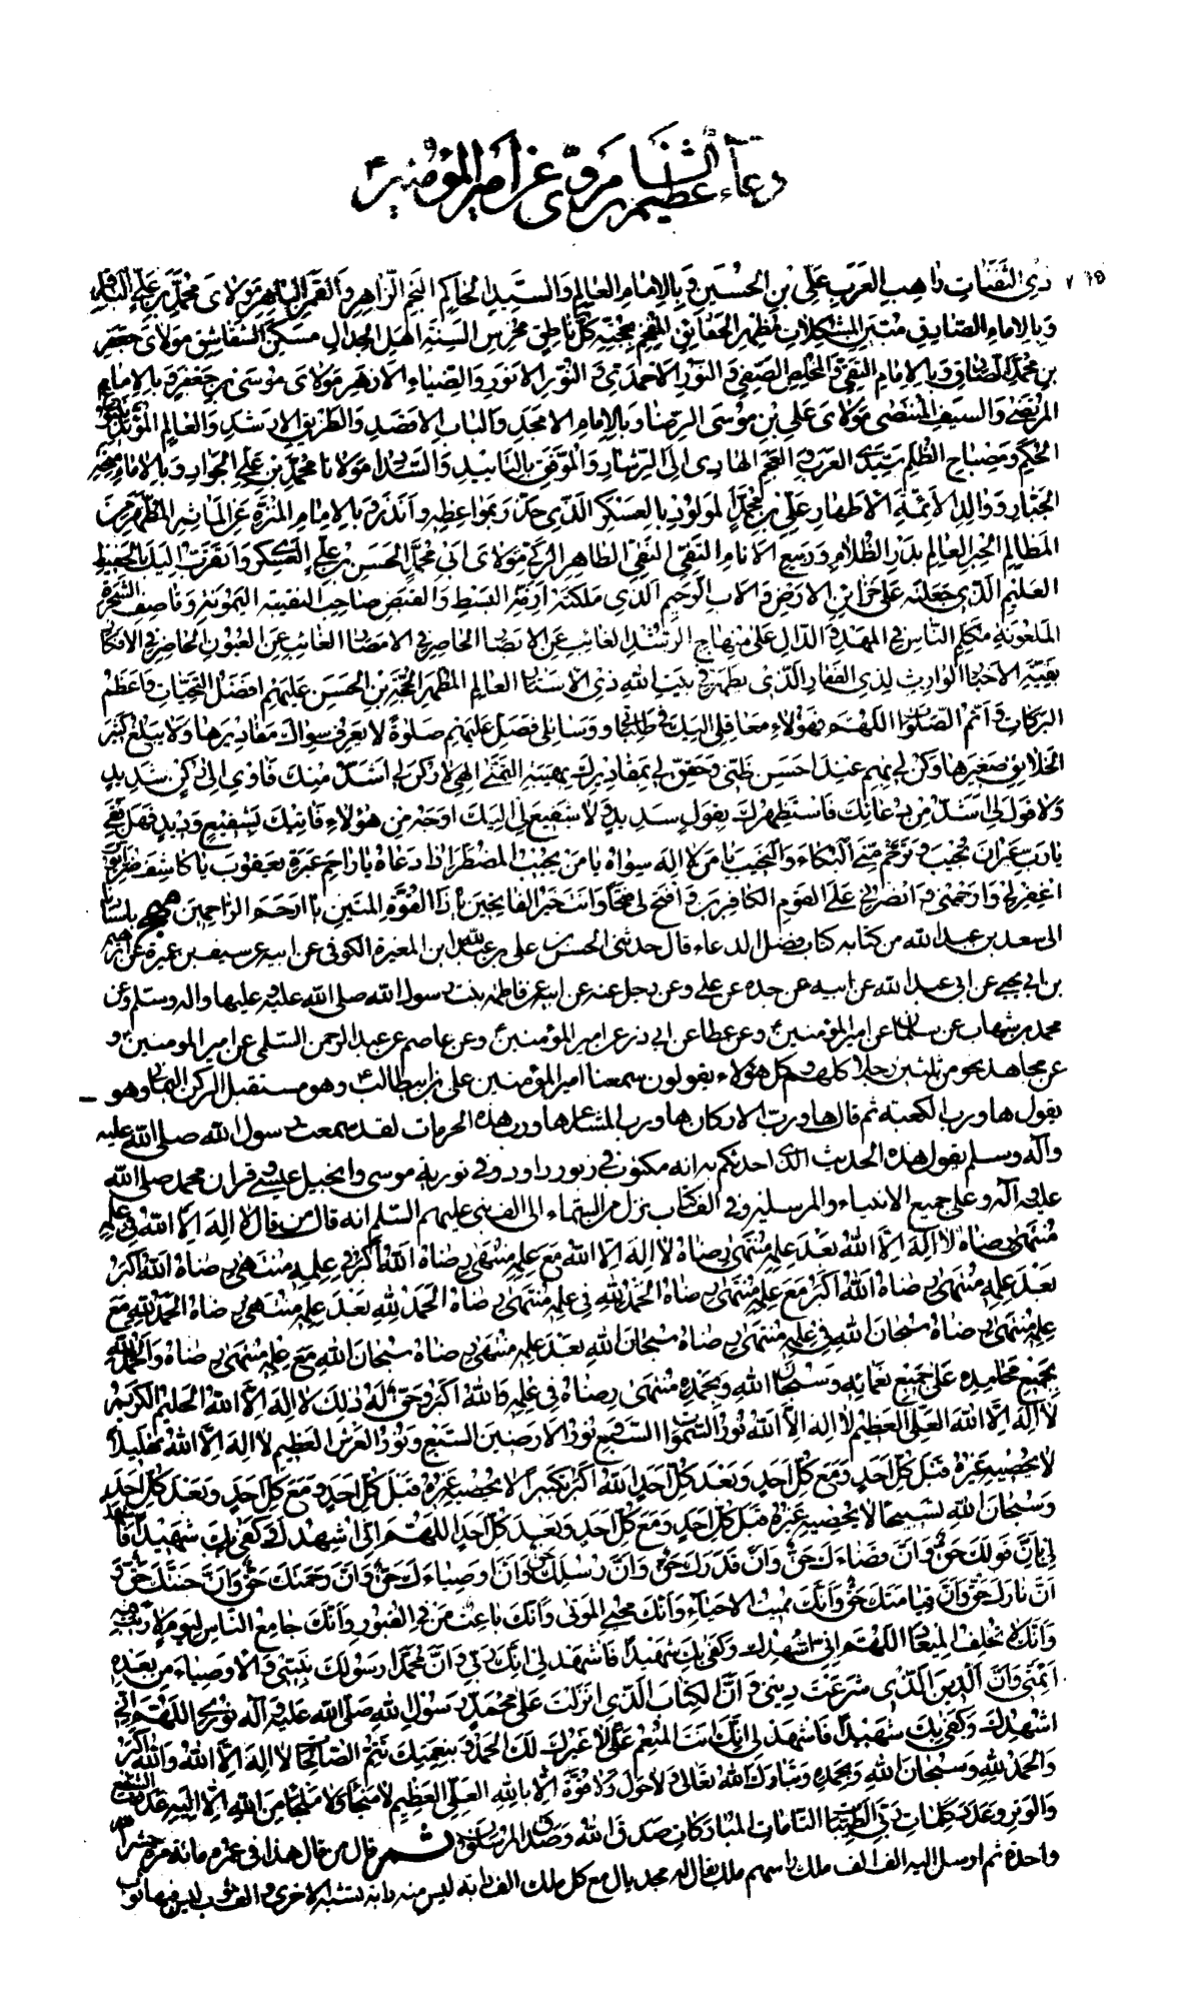 دعاء عظيم الثنا مروى عن امير المؤمنين ع
ذى الثفنات راهب العرب على بن الحسين و بالامام العالم والسيد الحاكم النجم الزاهر والقمر الباهر مولاى محمد بن على الباقر
وبالامام الصادق مبين المشكلات مظهر الحقائق المفحم بحجته كل ناطق مخرس السنة اهل الجدال مسكن الشقاشق مولاى جعفر
بن محمد الصادق وبالامام التقى والمخلص الصفى والنور الاحمدى والنور الانور والضياء الازهر مولاى موسى بن جعفر وبالامام
المرتضى والسيف المنتضى مولاى على بن موسى الرضا وبالامام الامجد والباب الاقصد والطريق الارشد والعالم المؤيد ينبوع
الحكم ومصباح الظلم سيد العرب والعجم الهادى الى الرشاد والموفق بالتاييد والسداد مولانا محمد بن على الجواد وبالامام منحة
الجبار ووالد الائمة الاطهار على بن محمد المولود بالعسكر الذى حذر بمواعظه وانذر وبالامام المنزه عن الماثم المطهر من
المظالم الحبر العالم بدر الظلام وربيع الانام التقى النقى الطاهر الزكى مولاى ابى محمد الحسن بن على العسكرى واتقرب اليك بالحفيظ
العليم الذى جعلته على خزائن الارض والاب الرحيم الذى ملكته ازمة البسط والقبض صاحب النقيبة الميمونة وقاصف الشجرة
الملعونة مكلم الناس فى المهد والدال على منهاج الرشد الغائب عن الابصار الحاضر فى الامصار الغائب عن العيون الحاضر فى الافكار
بقية الاخيار الوارث لذى الفقار الذى يظهر فى بيت الله ذى الاستار العالم المطهر الحجة بن الحسن عليهم افضل التحيات واعظم
البركات واتم الصلوات اللهم فهؤلاء معاقلى اليك فى طلباتى ووسائلى فصل عليهم صلوة لا يعرف سواك مقاديرها ولا يبلغ كثير
الخلائق صغيرها وكن لى بهم عند احسن ظنى وحقق لى بمقاديرك تهيئة التمنى الهى لا ركن لى اشد منك فاوى الى ركن شديد
ولا قول لى اسد من دعائك فاستظهرك بقول سديد ولا شفيع لى اليك اوجه من هؤلاء فاتيك بشفيع وديد فهل بقى
يا رب غير ان تجيب وترحم منى البكاء والنحيب يا من لا اله سواه يا من يجيب المضطر اذا دعاه يا راحم عبرة يعقوب يا كاشف ضر ايوب
اغفر لى وارحمنى وانصرنى على القوم الكافرين وافتح لى فتحا وانت خير الفاتحين يا ذا القوة المتين يا ارحم الراحمين مهج باسنادنا
الى سعد بن عبد الله من كتابه كتاب فضل الدعاء قال حدثنى الحسن بن على بن عبد الله ابن المغيرة الكوفى عن ابيه عن سيف بن عميرة عن ابرهيم
بن ابى يحيى عن ابى عبد الله عن ابيه عن جده عن على وعن رجل عنه عن ابيه عن فاطمه بنت رسول الله صلى الله عليه وعليها واله وسلم وعن
محمد بن شهاب عن سلمان عن امير المؤمنين ع وعن عطا عن ابى ذر عن امير المؤمنين ع وعن عاصم عن عبد الرحمن السلمى عن امير المومنين ع و
عن مجاهد نحو من ثلثين رجلا كلهم وكل هؤلاء يقولون سمعنا امير المؤمنين على بن ابيطالب ع وهو مستقبل الركن اليمانى وهو
يقول ها ورب الكعبة ثم قال ها ورب الاركان ها ورب المشاعر ها ورب هذه الحرمات لقد سمعت رسول الله صلى الله عليه
وآله وسلم يقول هذا الحديث الذى احدثكم به انه مكتوب فى زبور داود وفى تورية موسى وانجيل عيسى وفى قران محمد صلى الله
عليه وآله وعلى جميع الانبياء والمرسلين وفى الف كتاب نزل من السماء الى الف نبى عليهم السلم انه قال من قال لا اله الا الله فى علمه
منتهى رضاه لا اله الا الله بعد علمه منتهى رضاه لا اله الا الله مع علمه منتهى رضاه الله اكبر فى علمه منتهى رضاه الله اكبر
بعد علمه منتهى رضاه الله اكبر مع علمه منتهى رضاه الحمد لله فى علمه منتهى رضاه الحمد لله بعد علمه منتهى رضاه الحمد لله مع
علمه منتهى رضاه سبحان الله فى علمه منتهى رضاه سبحان الله بعد علمه منتهى رضاه سبحان الله مع علمه منتهى رضاه والحمد لله
بجميع محامده على جميع نعمائه وسبحان الله وبحمده منتهى رضاه فى علمه والله اكبر وحق له ذلك لا اله الا الله الحليم الكريم
لا اله الا الله العلى العظيم لا اله الا الله نور السموات السبع ونور الارضين السبع ونور العرش العظيم لا اله الا الله تهليلا
لا يحصيه غيره قبل كل احد ومع كل احد وبعد كل احد الله اكبر تكبيرا لا يحصيه غيره قبل كل احد ومع كل احد وبعد كل احد
وسبحان الله تسبيحا لا يحصيه غيره قبل كل احد ومع كل احد وبعد كل احد اللهم انى اشهدك وكفى بك شهيدا فاشهد
لى بان قولك حق وان قضاءك حق وان قدرك حق وان رسلك حق وان اوصياءك حق وان رحمتك حق وان جنتك حق و
ان نارك حق وان قيامتك حق وانك مميت الاحياء وانك محيى الموتى وانك باعث من فى القبور وانك جامع الناس ليوم لا ريب فيه
وانك لا تخلف الميعاد اللهم انى اشهدك وكفى بك شهيدا فاشهد لى انك ربى وان محمدا رسولك نبيى والاوصياء من بعده
ائمتى وان الدين الذى شرعت دينى وان الكتاب الذى انزلت على محمد رسول الله صلى الله عليه وآله نورى اللهم انى
اشهدك وكفى بك شهيدا فاشهد لى انك انت المنعم على لا غيرك لك الحمد وبنعمتك تتم الصالحات لا اله الا الله والله اكبر
والحمد لله وسبحان الله وبحمده وتبارك الله تعالى ولا حول ولا قوة الا بالله العلى العظيم لا منجا ولا ملجا من الله الا اليه عدد الشفع
والوتر وعدد كلمات ربى الطيبات التامات المباركات صدق الله وصدق المرسلون ثم قال من قال هذا فى عمره مائة مرة حشر امة
واحدة ثم ارسل اليه الف الف ملك راسهم ملك يقال له مجديال مع كل ملك الف دابه ليس منه دابه تشبه الاخرى والف ثوب ليس فيها ثوب